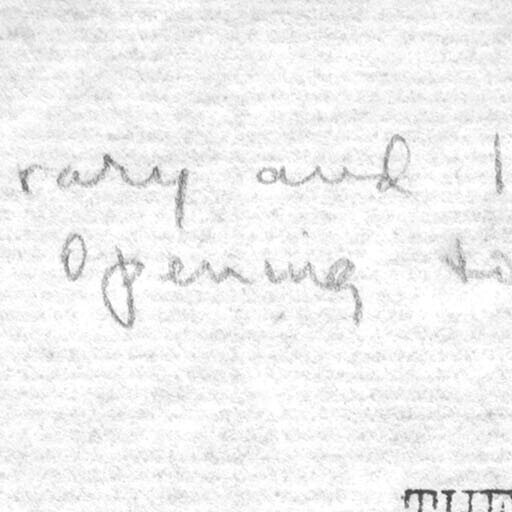 rary and
Opening to
THE